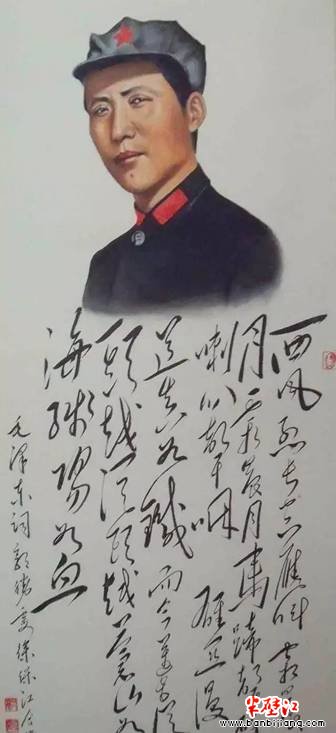 西风烈长空雁叫霜
月霜晨月马蹄声碎
喇叭声咽 雄关漫
道真如铁而今迈步从
头越从头越苍山如
海残阳如血
毛泽东词
半壁江
www.banbijiang.com